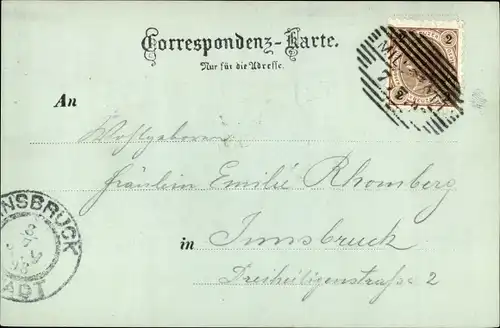 Correspondenz-Karte.
Nur für die Adresse.
2
An
Wohlgeboren
Fräulein Emilie Rhomberg
in Innsbruck
Dreiheiligenstraße 2
INNSBRUCK
STADT